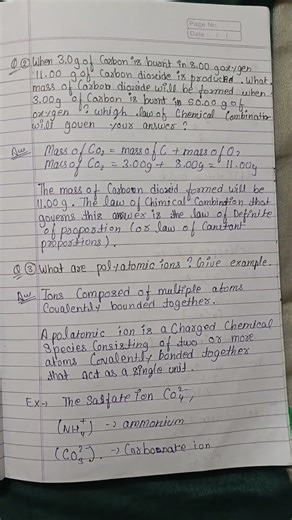 Page No.
Date: / /
Q.② When 3.0g of Carbon is burnt in 8.00 g oxygen
11.00 g of Carbon dioxide is produced. What
mass of Carbon dioxide will be formed when
3.00g of Carbon is burnt in 50.00 g of
oxygen? which law of Chemical Combination
will goven your answer?
Ans Mass of CO₂ = mass of C + mass of O₂
Mass of CO₂ = 3.00g + 8.00g = 11.00g
The mass of Carboon dioxid formed will be
11.00g. The law of Chimical Combination that
governs this answer is the law of Definite
of propostion (or law of Constant
proportions).
Q③ What are polyatomic ions? Give example.
Ans Ions Composed of multiple atoms
Covalently bounded together.
A polatomic ion is a Charged Chemical
Species Consisting of two or more
atoms Covalently bonded together
that act as a single unit.
Ex→ The Salfate Ion CO₄²⁻,
(NH₄⁺) → ammonium
(CO₃²⁻). → Carboonate ion